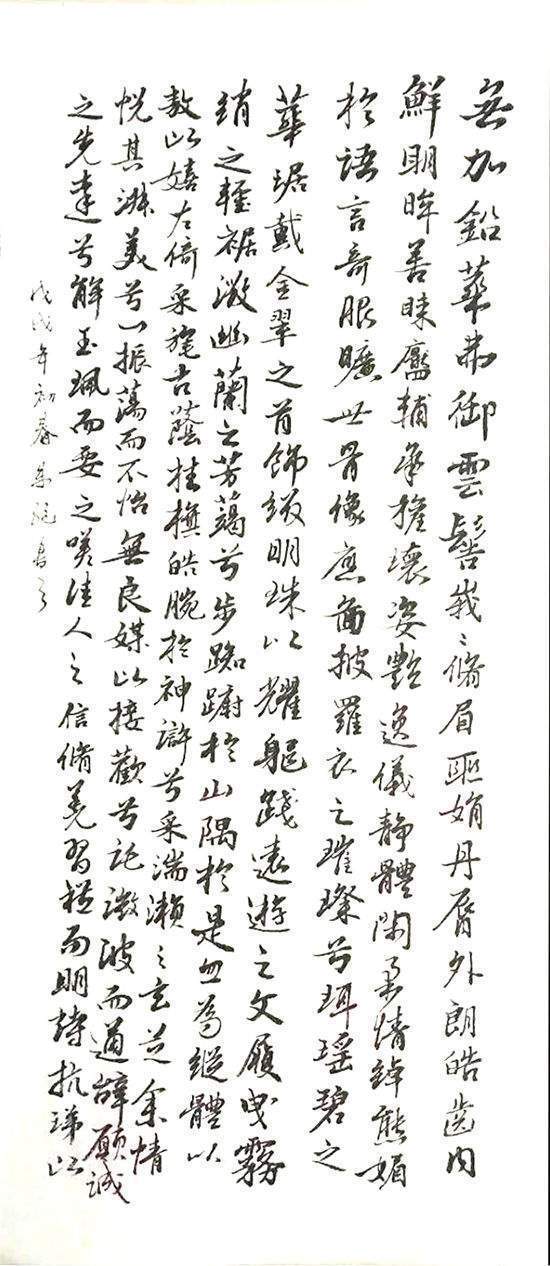 無加鉛華弗御雲髻峩〻脩眉聯娟丹脣外朗皓齒内
鮮明眸善睞靨輔承權瓌姿艷逸儀靜體閑柔情綽態媚
於語言奇服曠世骨像應圖披羅衣之璀璨兮珥瑶碧之
華琚戴金翠之首飾綴明珠以耀軀踐遠遊之文履曳霧
綃之輕裾微幽蘭之芳藹兮步踟躕於山隅於是忽焉縱體以
敖以嬉左倚采旄右蔭桂旗皓腕於神滸兮采湍瀬之玄芝余情
悦其淑美兮心振蕩而不怡無良媒以接歡兮託微波而通辭願誠
之先達兮解玉珮而要之嗟佳人之信脩羌習禮而明詩抗瓊以
戊戌年初春